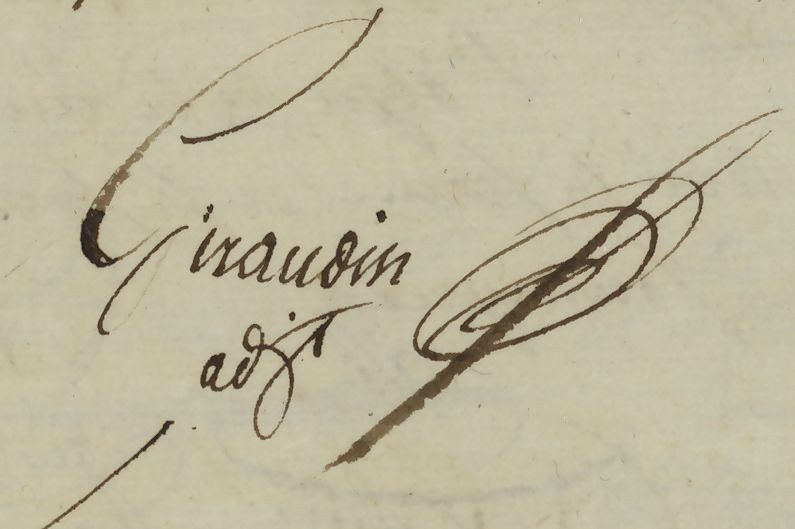 Giraudin
adjt